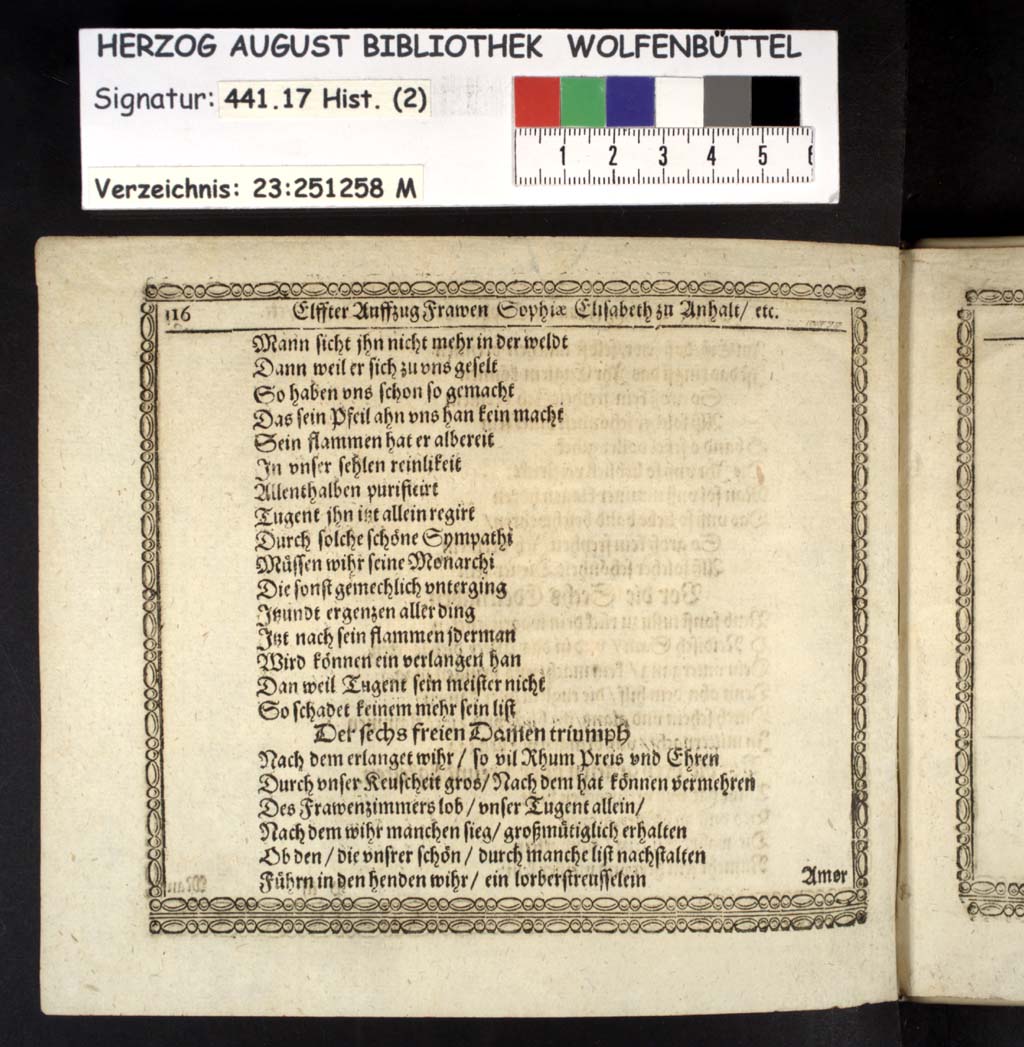 HERZOG AUGUST BIBLIOTHEK WOLFENBÜTTEL
Signatur: 441.17 Hist. (2)
1 2 3 4 5 6
Verzeichnis: 23:251258 M
116 Elffter Auffzug Frawen Sophiæ Elisabeth zu Anhalt/ etc.
Mann sicht jhn nicht mehr in der weldt
Dann weil er sich zu vns geselt
So haben vns schon so gemacht
Das sein Pfeil ahn vns han kein macht
Sein flammen hat er albereit
In vnser sehlen reinlikeit
Allenthalben purificirt
Tugent jhn itzt allein regirt
Durch solche schöne Sympathi
Müssen wihr seine Monarchi
Die sonst gemechlich vnterging
Itzundt ergenzen aller ding
Itzt nach sein flammen jderman
Wird können ein verlangen han
Dan weil Tugent sein meister nicht
So schadet keinem mehr sein list
Der sechs freien Damen triumph
Nach dem erlanget wihr / so vil Rhum Preis vnd Ehren
Durch vnser Keuscheit gros/ Nach dem hat können vermehren
Des Frawenzimmers lob / vnser Tugent allein/
Nach dem wihr manchen sieg/ großmütiglich erhalten
Ob den / die vnsrer schön / durch manche list nachstalten
Führn in den henden wihr / ein lorberstreusselein
Amor